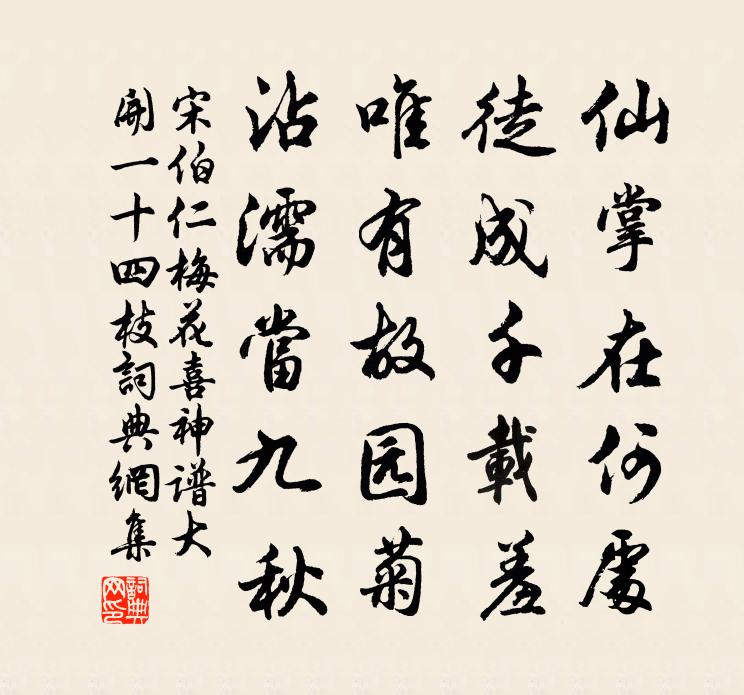 仙掌在何處
徒成千載羞
唯有故园菊
沾濡當九秋
宋伯仁梅花喜神谱大
開一十四枝詞典網集
詞典網印